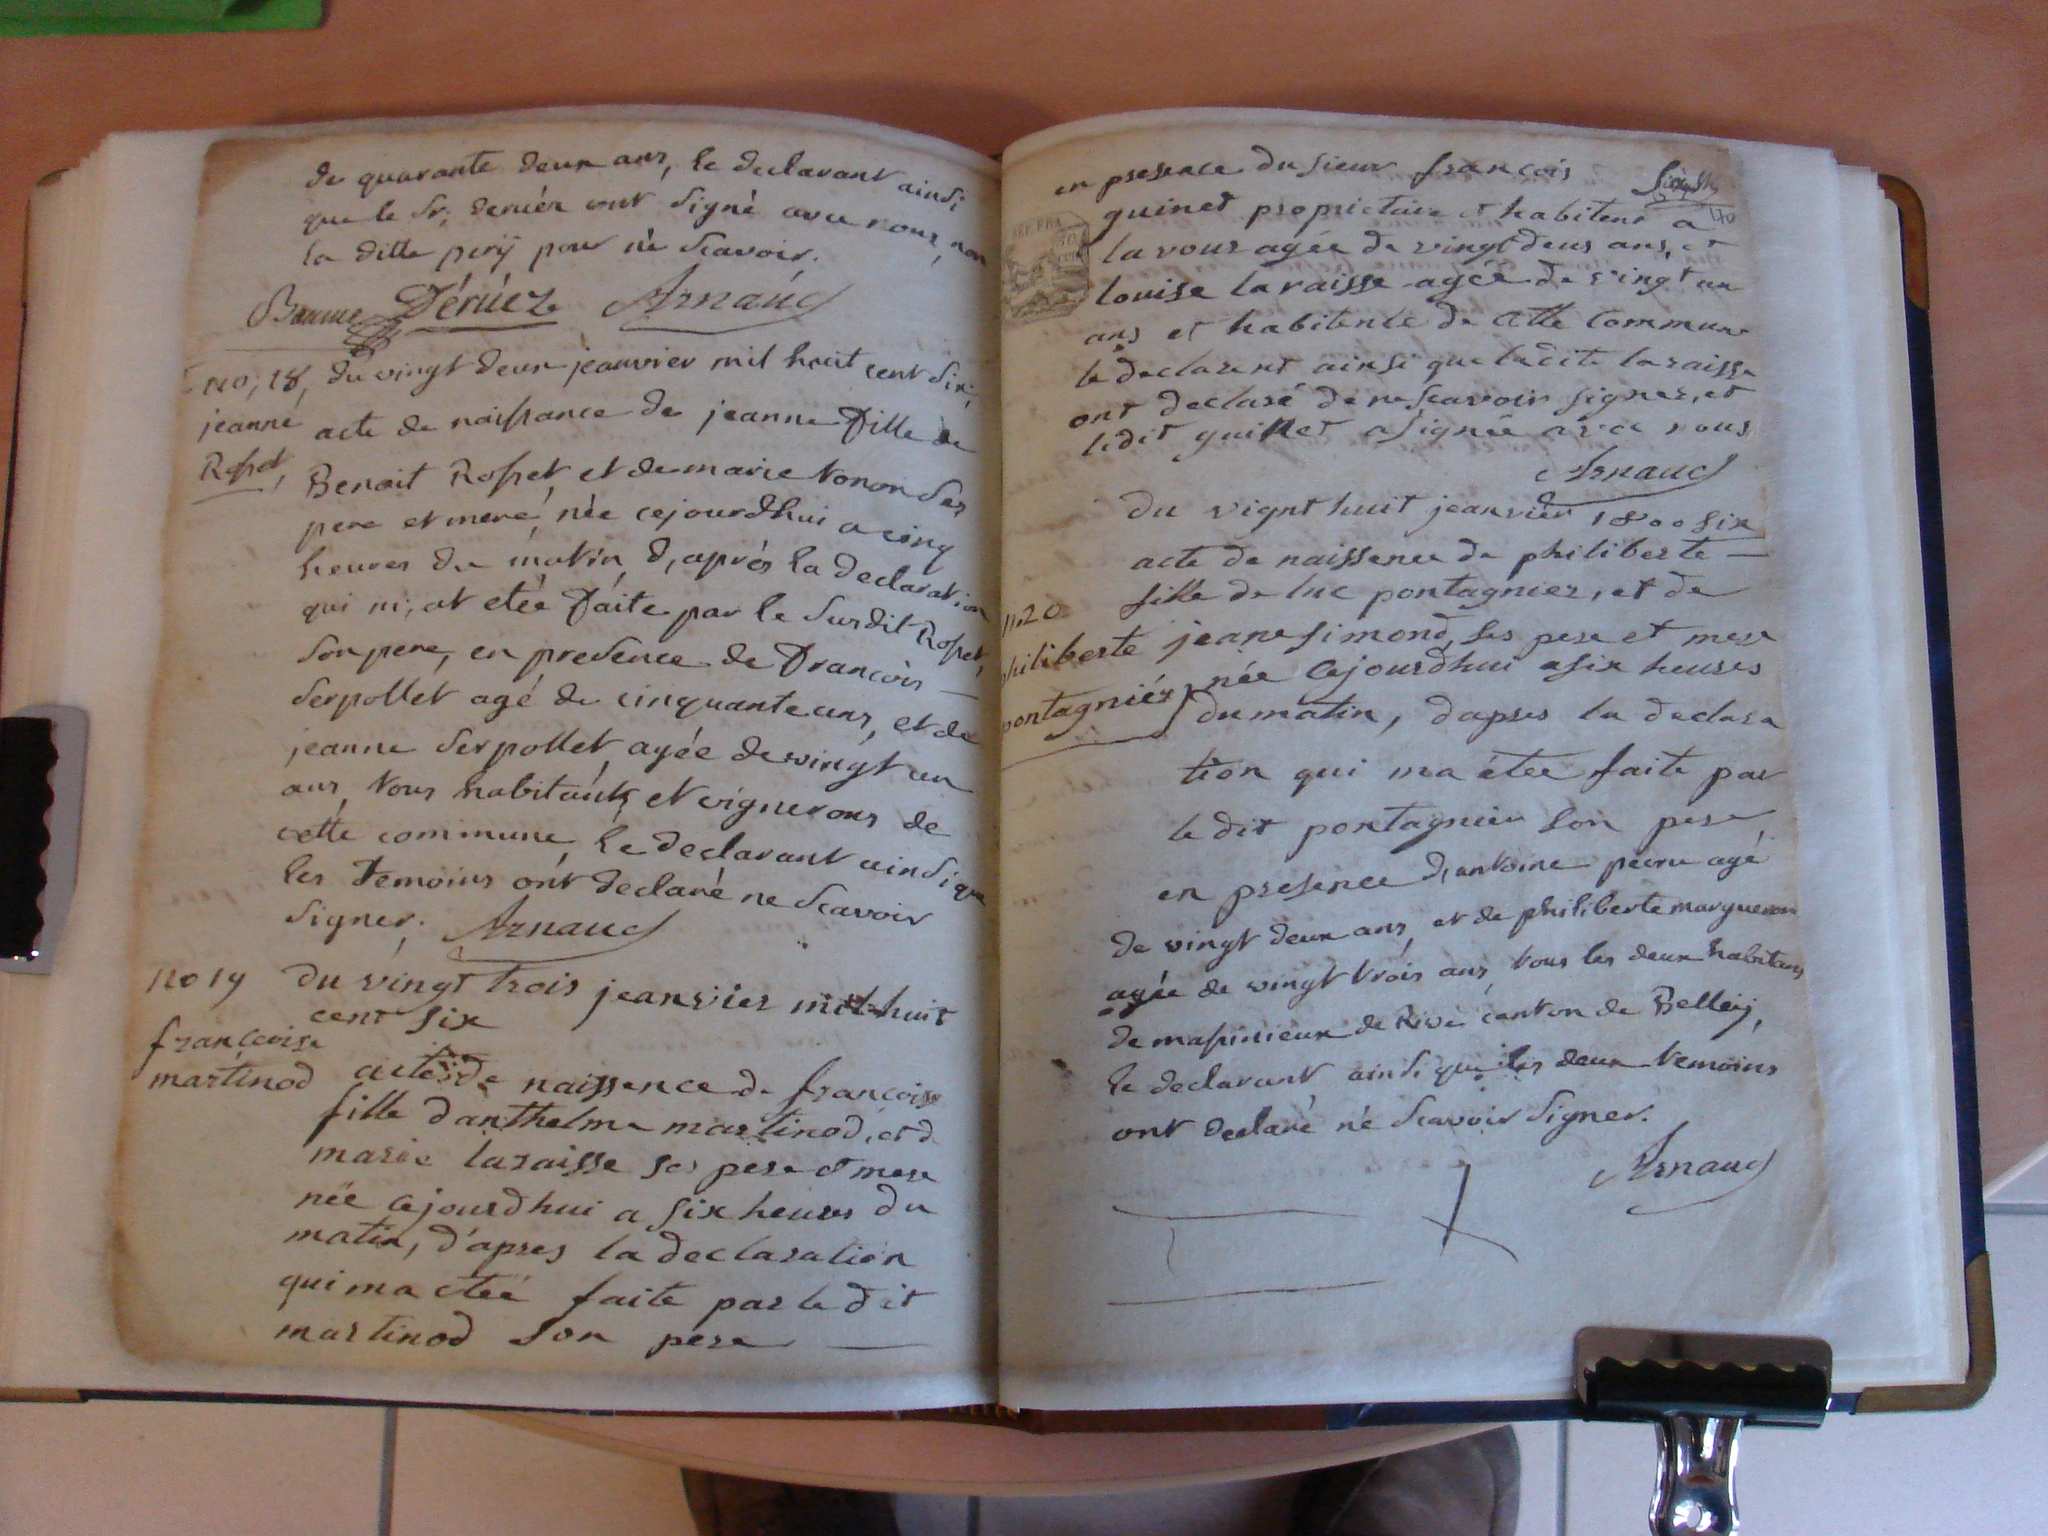 de quarante deux ans, le declarant ainsi
que le Sr; deriéz ont signé avec nous, non
la ditte perij pour né scavoir.
Bonne Dériéz Arnaud
no; 18, du vingt deux jeanvier mil huit cent six;
jeanne
Rosset,
acte de naissance de jeanne fille de
Benoit Rosset et de marie tonon ses
pere et mere, née cejourdhui a cinq
heures du matin, d, aprés la declaration
qui m; at etée faite par le susdit Rosset,
son pere, en presence de François
Serpollet agé de cinquante ans, et de
jeanne Serpollet, agée de vingt un
ans, tous habitants et vignerons de
cette commune, le declarant ainsi que
les temoins ont declaré ne scavoir
signer; Arnaud
no 19 du vingt trois jeanvier mil huit
cent six
francoise
martinod
acte de naissence de francoise
fille danthelme martinod, et d
marie laraisse ses pere et mere
née cejourdhui a six heures du
matin, d'apres la declaration
qui ma etée faite par le dit
martinod son pere
en presence du sieur francois
guinet proprietaire et habitent a
la vour agée de vingt deus ans, et
louise laraisse agée de vingt un
ans et habitente de cette commune
le declarent ainsi que ladite laraisse
ont declaré de ne scavoir signer, et
ledit guinet a signée avec nous
Arnaud
du vignt huit jeanvier 1800 six
acte de naissence de philiberte
fille de luc pontagnier, et de
n. 20
philiberte
pontagniér
jeane simond, ses pere et mere
née cejourdhui a six heures
du matin, dapres la declara
tion qui ma étee faite par
le dit pontagnier son pere
en presence d, antoine peirne agé
de vingt deux ans, et de philiberte margueron
agée de vingt trois ans, tous les deux habitans
de massinieux de Rive canton de Belleij,
le declarant ainsi que les deux temoins
ont declaré né scavoir signer.
Arnaud